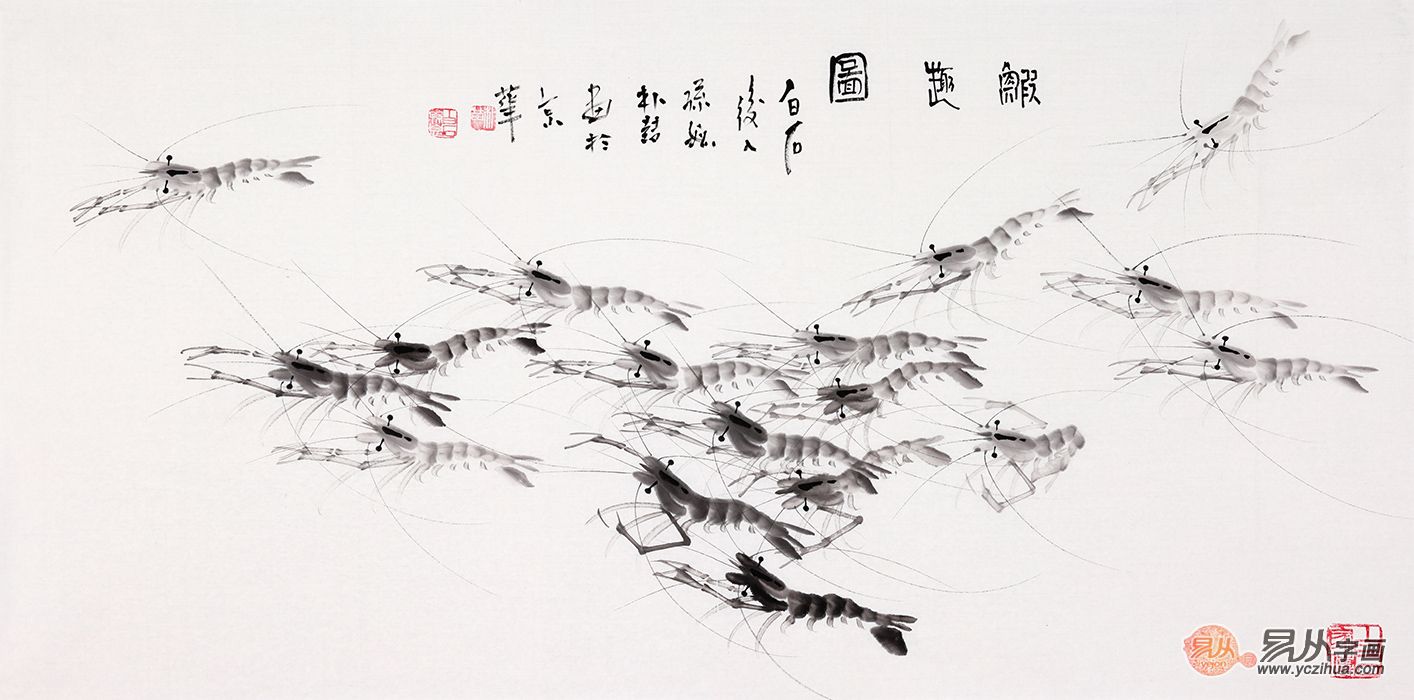 鰕趣圖
白石
後人
孫媳
朴慧
畫於
京
華
易从字画
yejon
www.yczihua.com